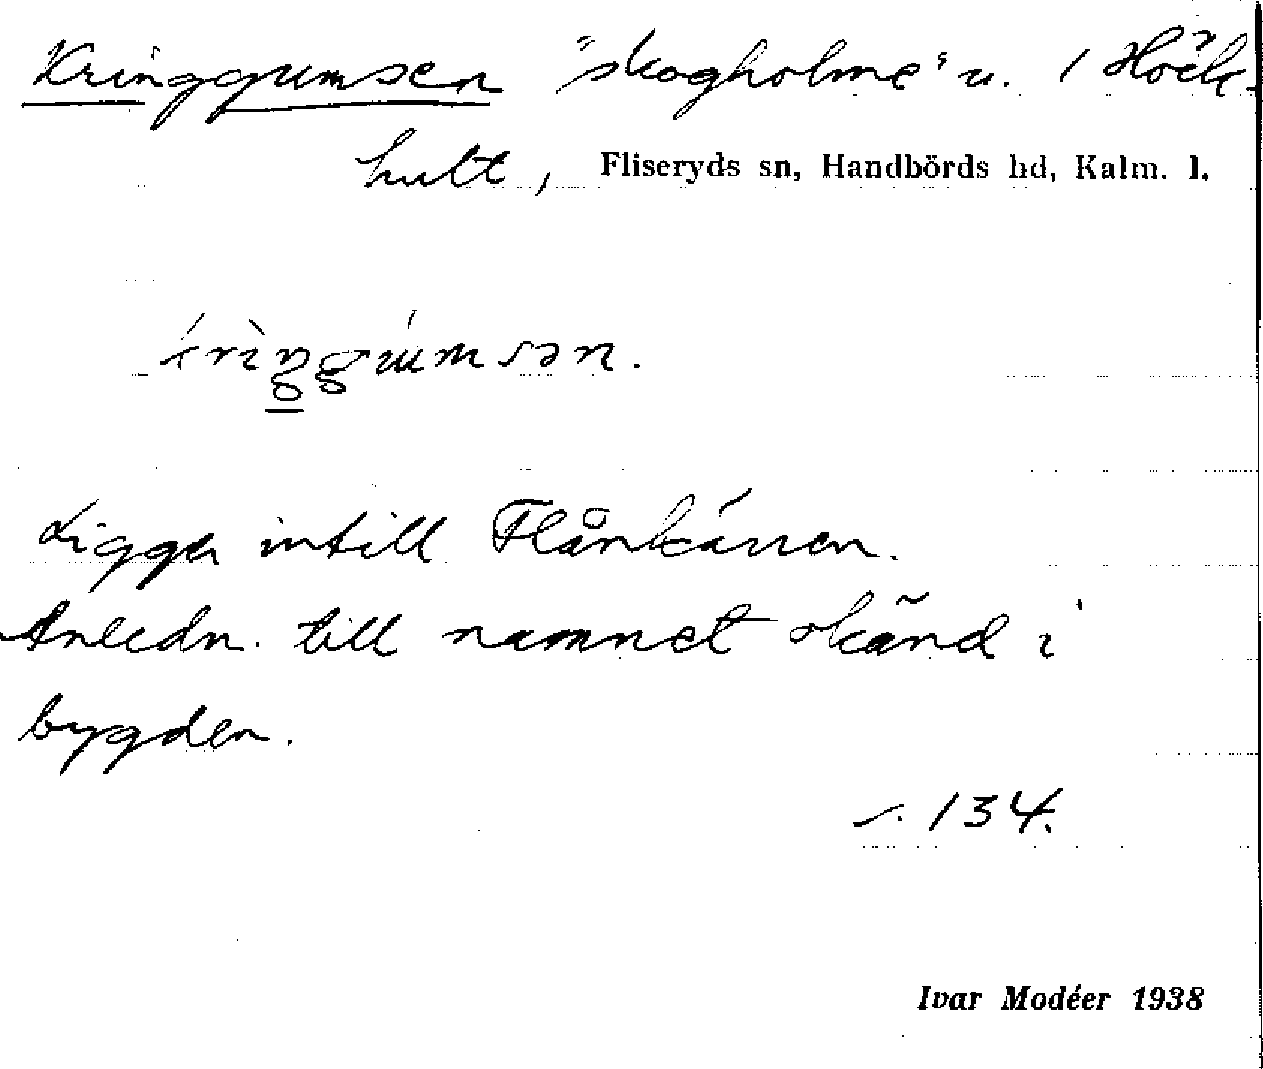 Kringgumsen "skogholme" u. 1 Höck-
hult, Fliseryds sn, Handbörds hd, Kalm. l.
Ligger intill Flånkärren.
Anledn. till namnet okänd i
bygden.
s. 134.
Ivar Modéer 1938